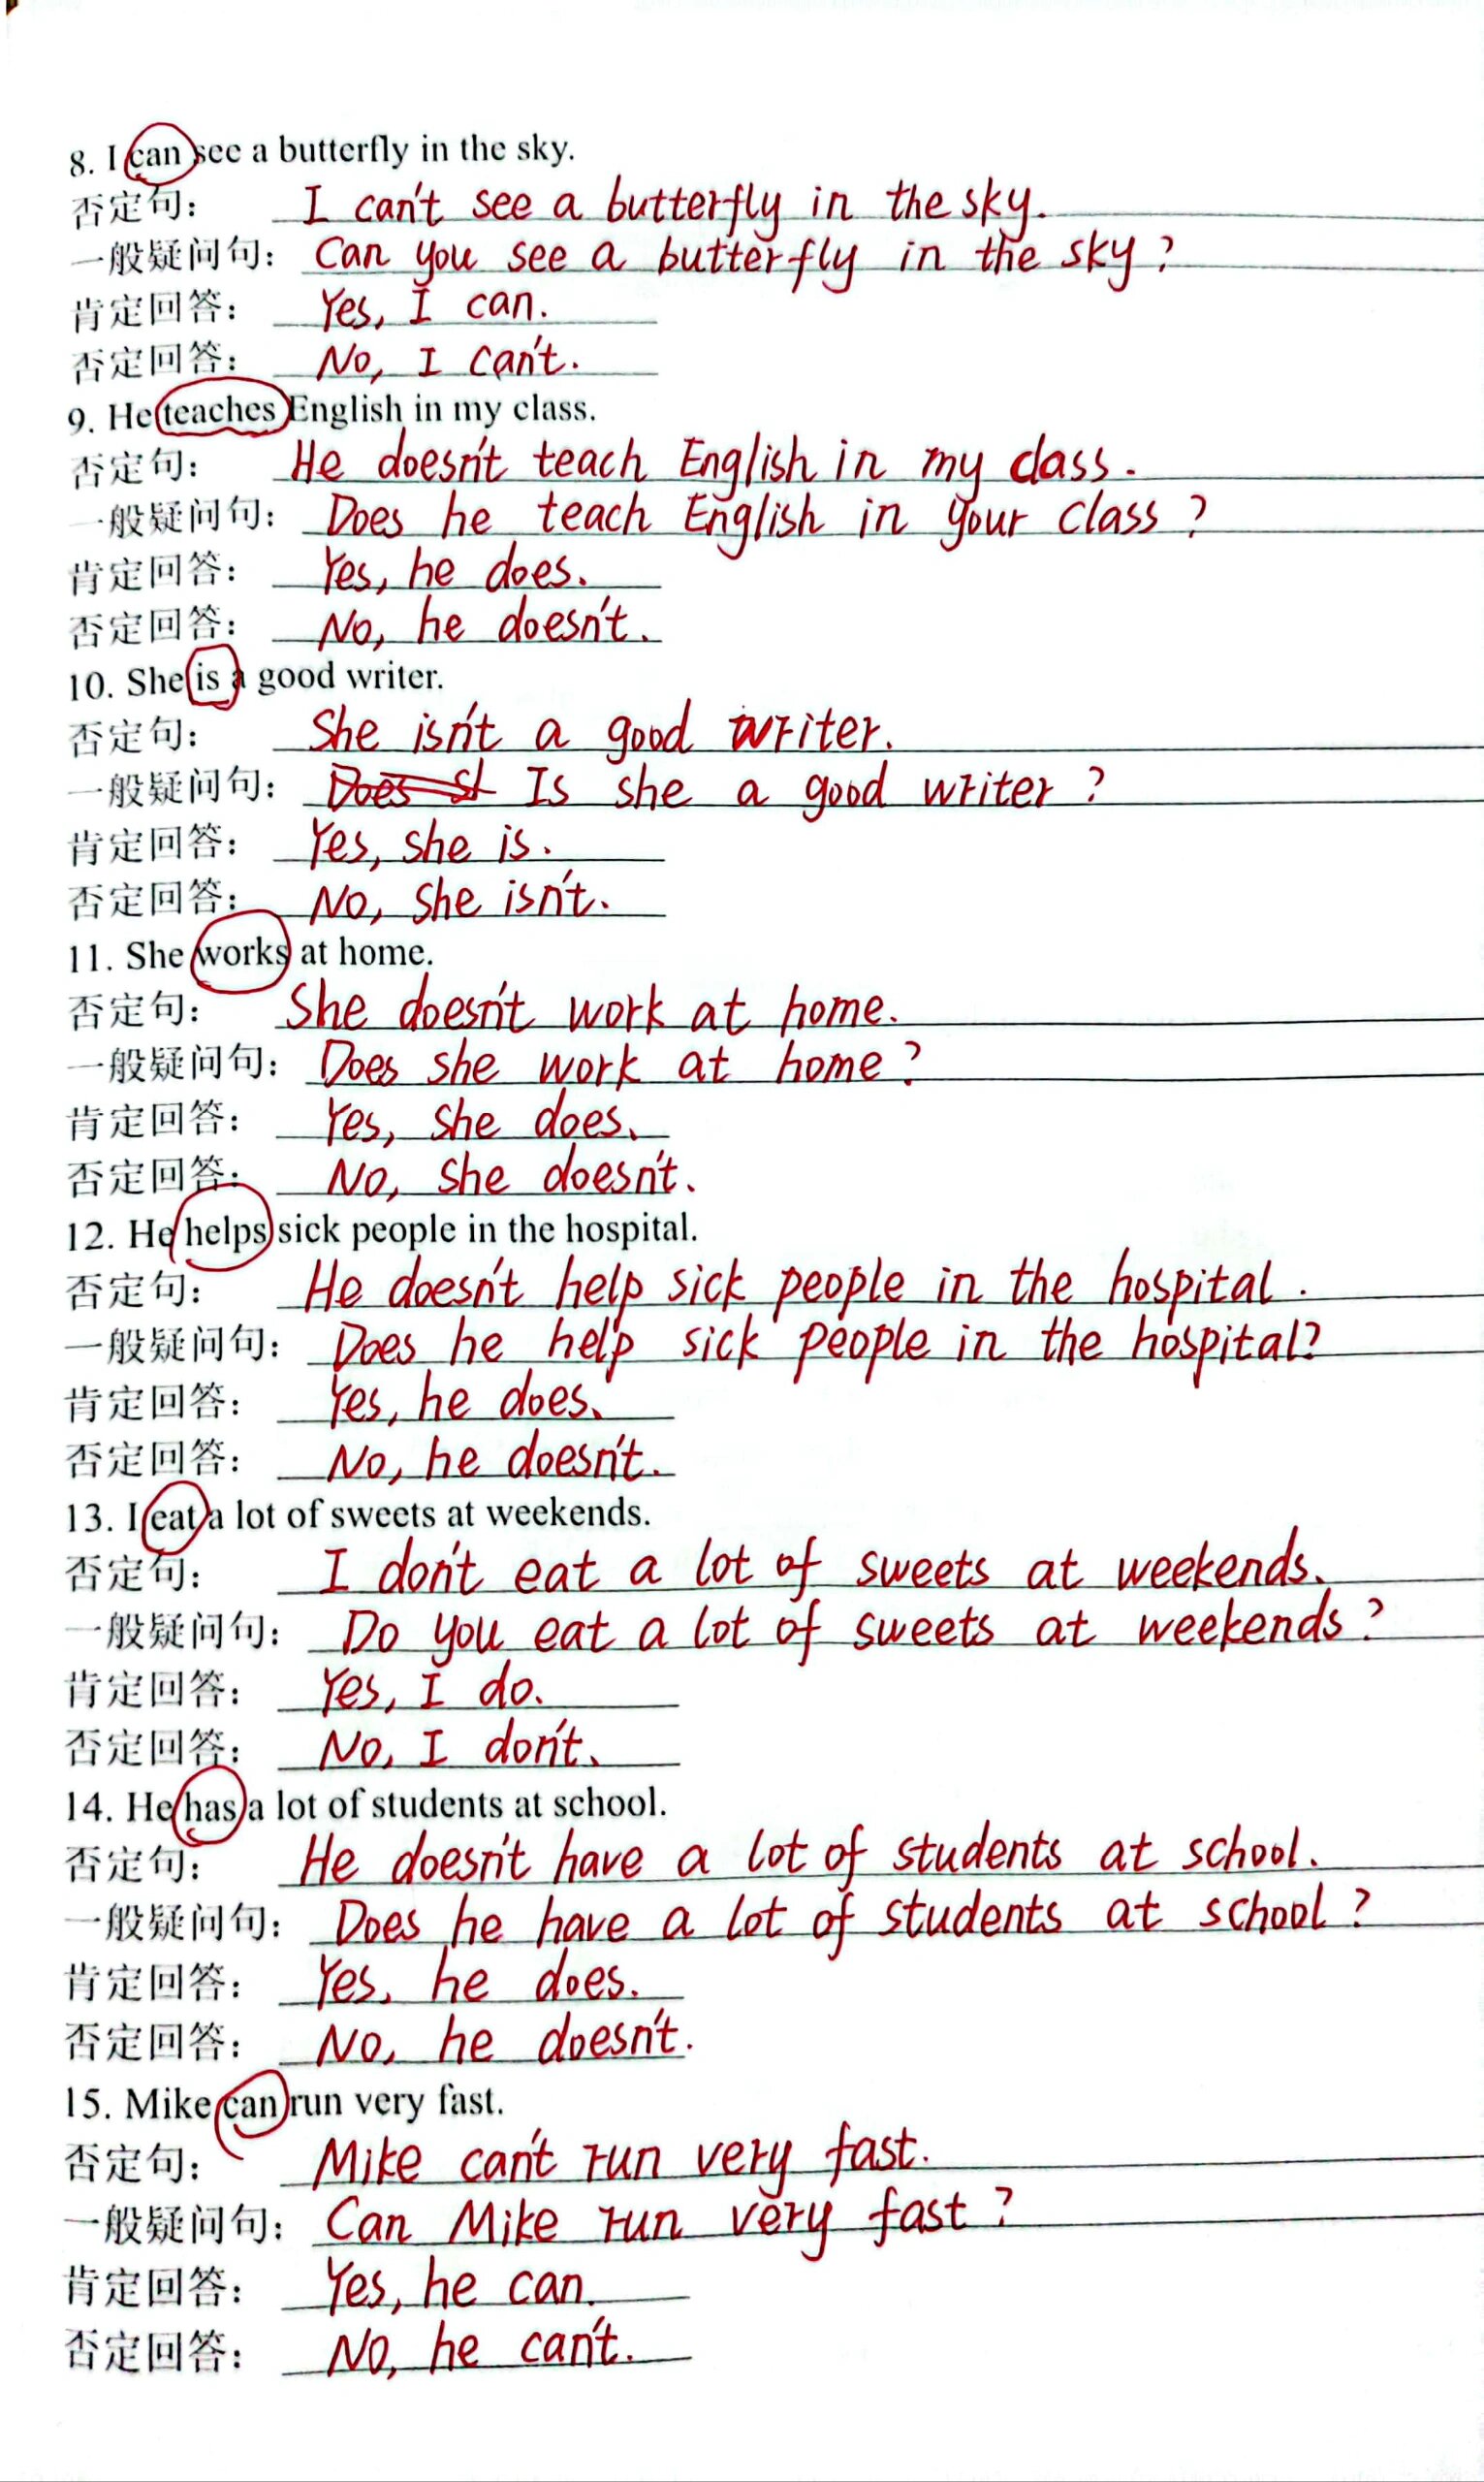 8. I can see a butterfly in the sky.
否定句： I can't see a butterfly in the sky.
一般疑问句： Can you see a butterfly in the sky?
肯定回答： Yes, I can.
否定回答： No, I can't.
9. He teaches English in my class.
否定句： He doesn't teach English in my class.
一般疑问句： Does he teach English in your class?
肯定回答： Yes, he does.
否定回答： No, he doesn't.
10. She is a good writer.
否定句： She isn't a good writer.
一般疑问句： Does sh Is she a good writer?
肯定回答： Yes, she is.
否定回答： No, she isn't.
11. She works at home.
否定句： She doesn't work at home.
一般疑问句： Does she work at home?
肯定回答： Yes, she does.
否定回答： No, she doesn't.
12. He helps sick people in the hospital.
否定句： He doesn't help sick people in the hospital.
一般疑问句： Does he help sick people in the hospital?
肯定回答： Yes, he does.
否定回答： No, he doesn't.
13. I eat a lot of sweets at weekends.
否定句： I don't eat a lot of sweets at weekends.
一般疑问句： Do you eat a lot of sweets at weekends?
肯定回答： Yes, I do.
否定回答： No, I don't.
14. He has a lot of students at school.
否定句： He doesn't have a lot of students at school.
一般疑问句： Does he have a lot of students at school?
肯定回答： Yes, he does.
否定回答： No, he doesn't.
15. Mike can run very fast.
否定句： Mike can't run very fast.
一般疑问句： Can Mike run very fast?
肯定回答： Yes, he can.
否定回答： No, he can't.